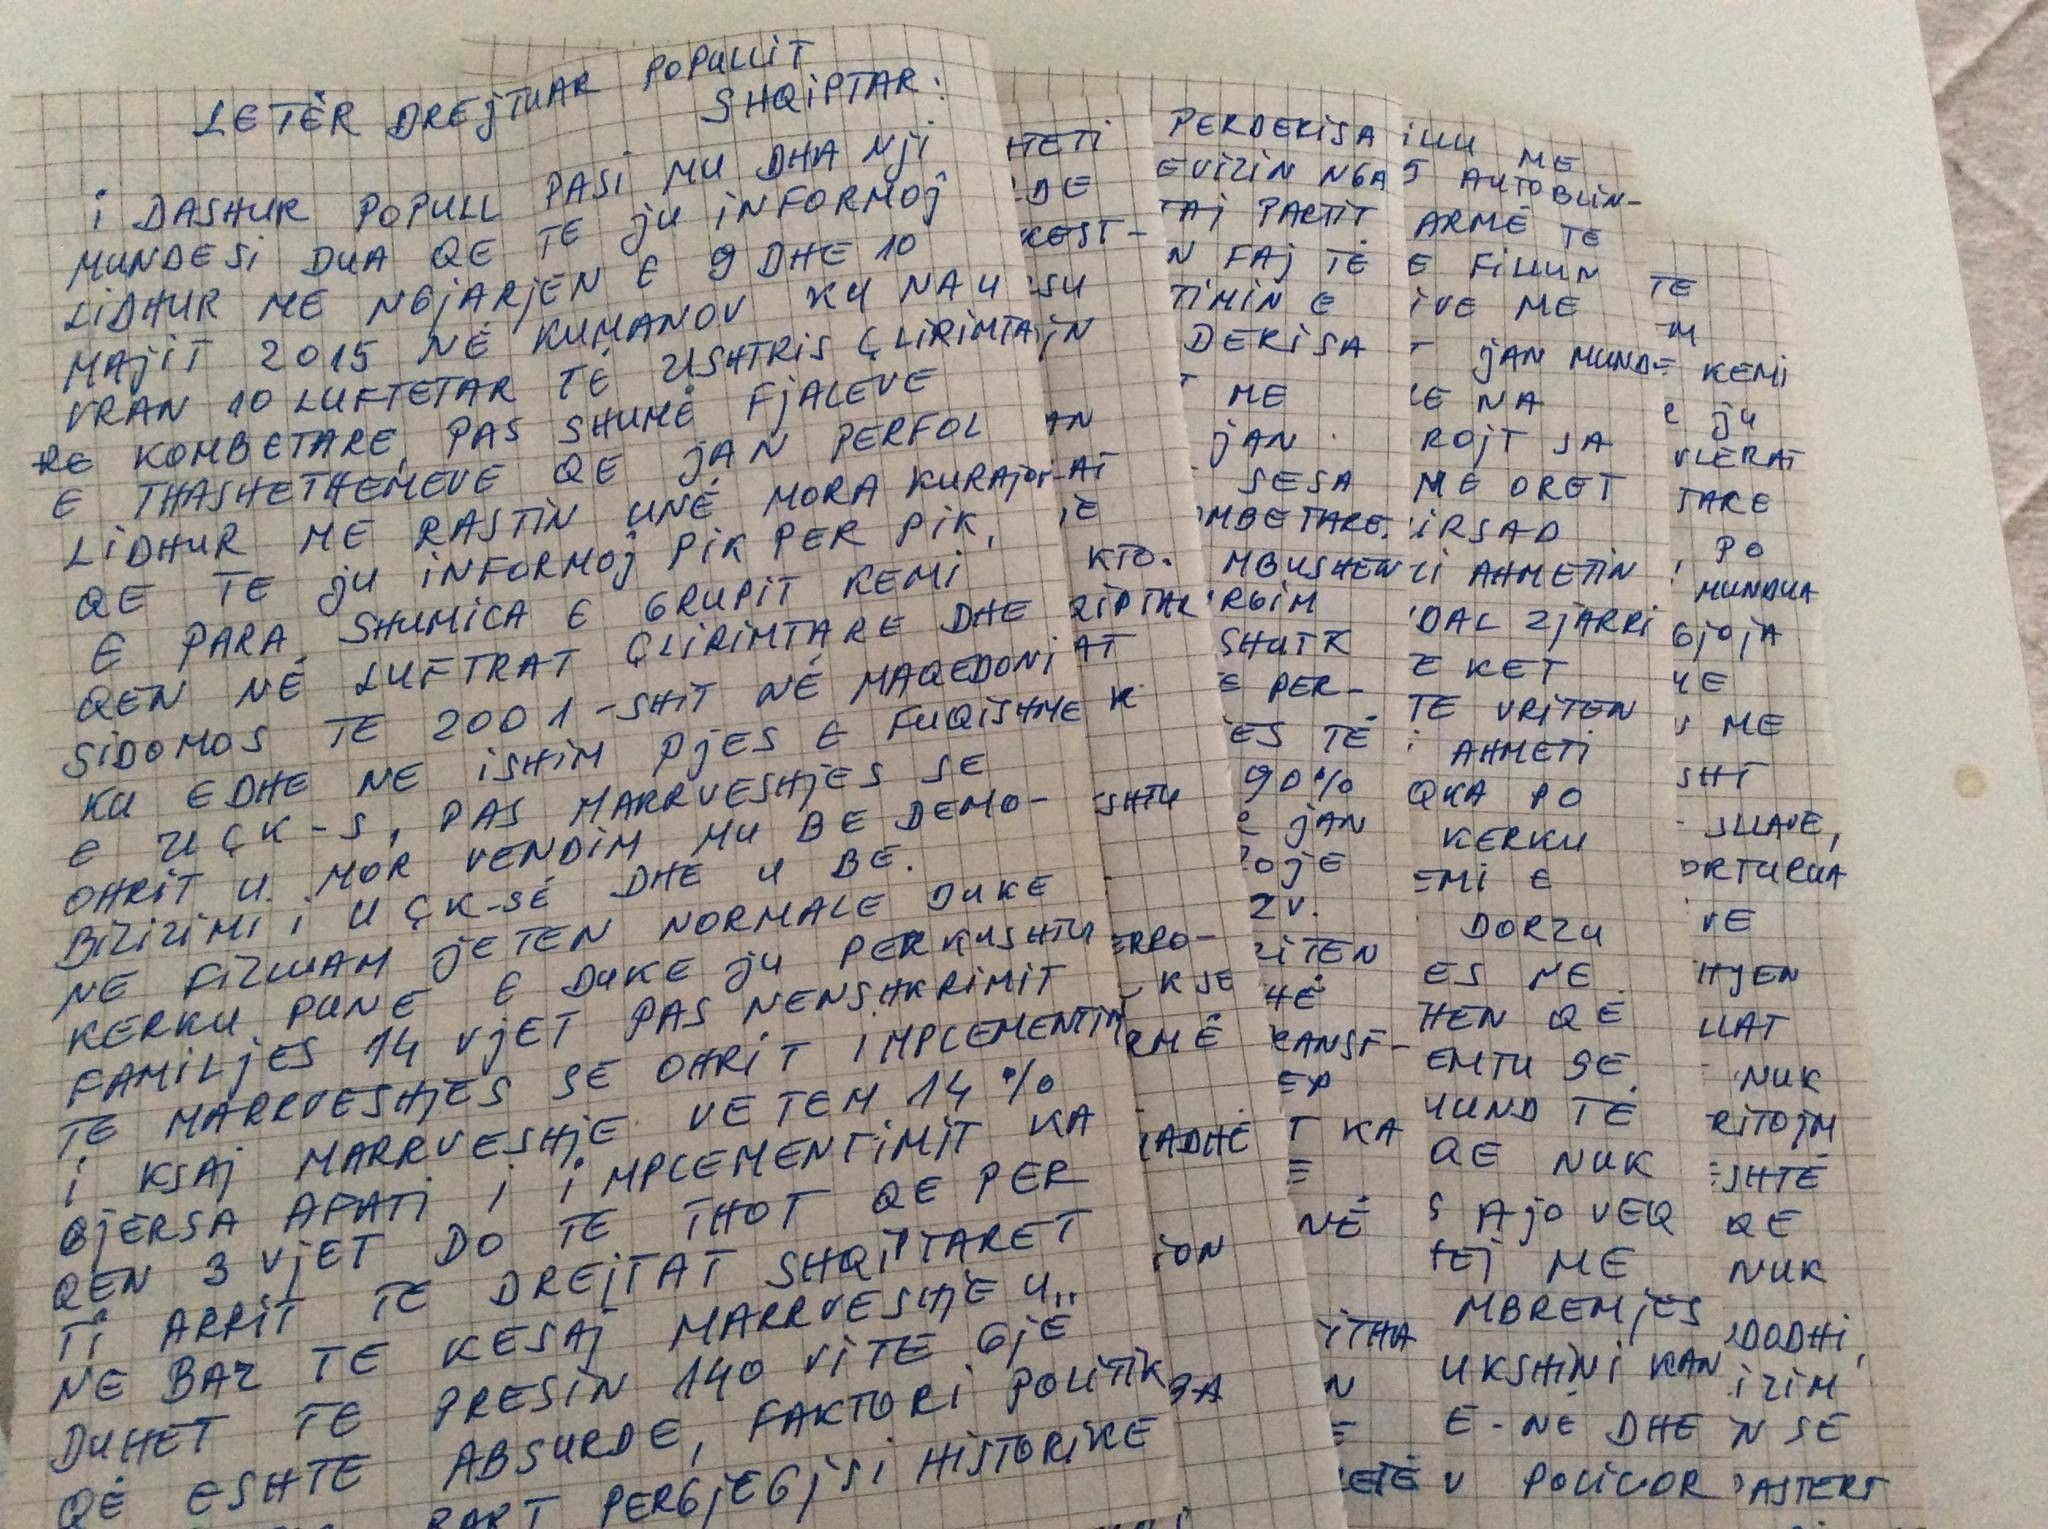 LETËR DREJTUAR POPULLIT
SHQIPTAR:
i DASHUR POPULL PASI MU DHA NJI
MUNDESI DUA QE TE JU INFORMOJ
LIDHUR ME NGJARJEN E 9 DHE 10
MAJIT 2015 NË KUMANOV KU NA U
VRAN 10 LUFTETAR TË USHTRIS ÇLIRIMTA
RE KOMBETARE, PAS SHUMË FJALEVE
E THASHETHEMEVE QE JAN PERFOL
LIDHUR ME RASTIN UNË MORA KURAJO
QE TE JU INFORMOJ PIK PER PIK,
E PARA SHUMICA E GRUPIT KEMI
QEN NË LUFTRAT ÇLIRIMTARE DHE
SIDOMOS TE 2001-SHIT NË MAQEDONI
KU EDHE NE ISHIM PJES E FUQISHME
E UÇK-S, PAS MARRVESHJES SE
OHRIT U MOR VENDIM MU BE DEMO-
BILIZIMI I UÇK-SË DHE U BË.
NE FILLUAM JETEN NORMALE DUKE
KERKU PUNE E DUKE JU PERKUSHTU
FAMILJES 14 VJET PAS NENSHKRIMIT
TË MARRVESHJES SË OHRIT IMPLEMENTIM
I KSAJ MARRVESHJE VETEM 14 %
GJERSA AFATI I IMPLEMENTIMIT KA
QEN 3 VJET DO TE THOT QE PER
TI ARRIT TE DREJTAT SHQIPTARET
NE BAZ TE KESAJ MARRVESHJE U..
DUHET TE PRESIN 140 VITE GJË
QË ESHTE ABSURDE, FAKTORI POLITIK
BART PERGJEGJSI HISTORIKE
HTETI
KEST-
KTO.
QIPTAR
ADHË
PERDERISA
EVIZIN NGA
TAJ PAKTIT
N FAJ TË
TIMIN E
DERISA
ME
JAN
SESA
OMBETARE.
MBUSHEN
SHUTK
E PER-
ES TË
90%
JAN
ZV.
RITEN
RANSF-
T KA
NË
ILLU ME
5 AUTOBLIN-
ARMË TË
E FILLUN
IVE ME
JAN MUND
E NA
ROJT SA
ME ORET
IRSAD
LI AHMETIN
DAL ZJARRI
E KET
TE VRITEN
I AHMETI
QKA PO
KERKU
EMI E
DORZU
ES ME
HEN QË
EMTU SE
MUND TË
QE NUK
S AJO VEQ
TEJ ME
MBREMJES
UKSHINI KAN
E-NË DHE
V POLICOR
TE
KEMI
JU
VLERAT
TARE
PO
MUNDUA
GJOJA
ME
SHT
SLLAVE,
ORTURUA
VE
HJEN
UAT
NUK
RITOJM
ESHTË
QE
NUK
DODHI,
IZIM
N SË
PASTERT